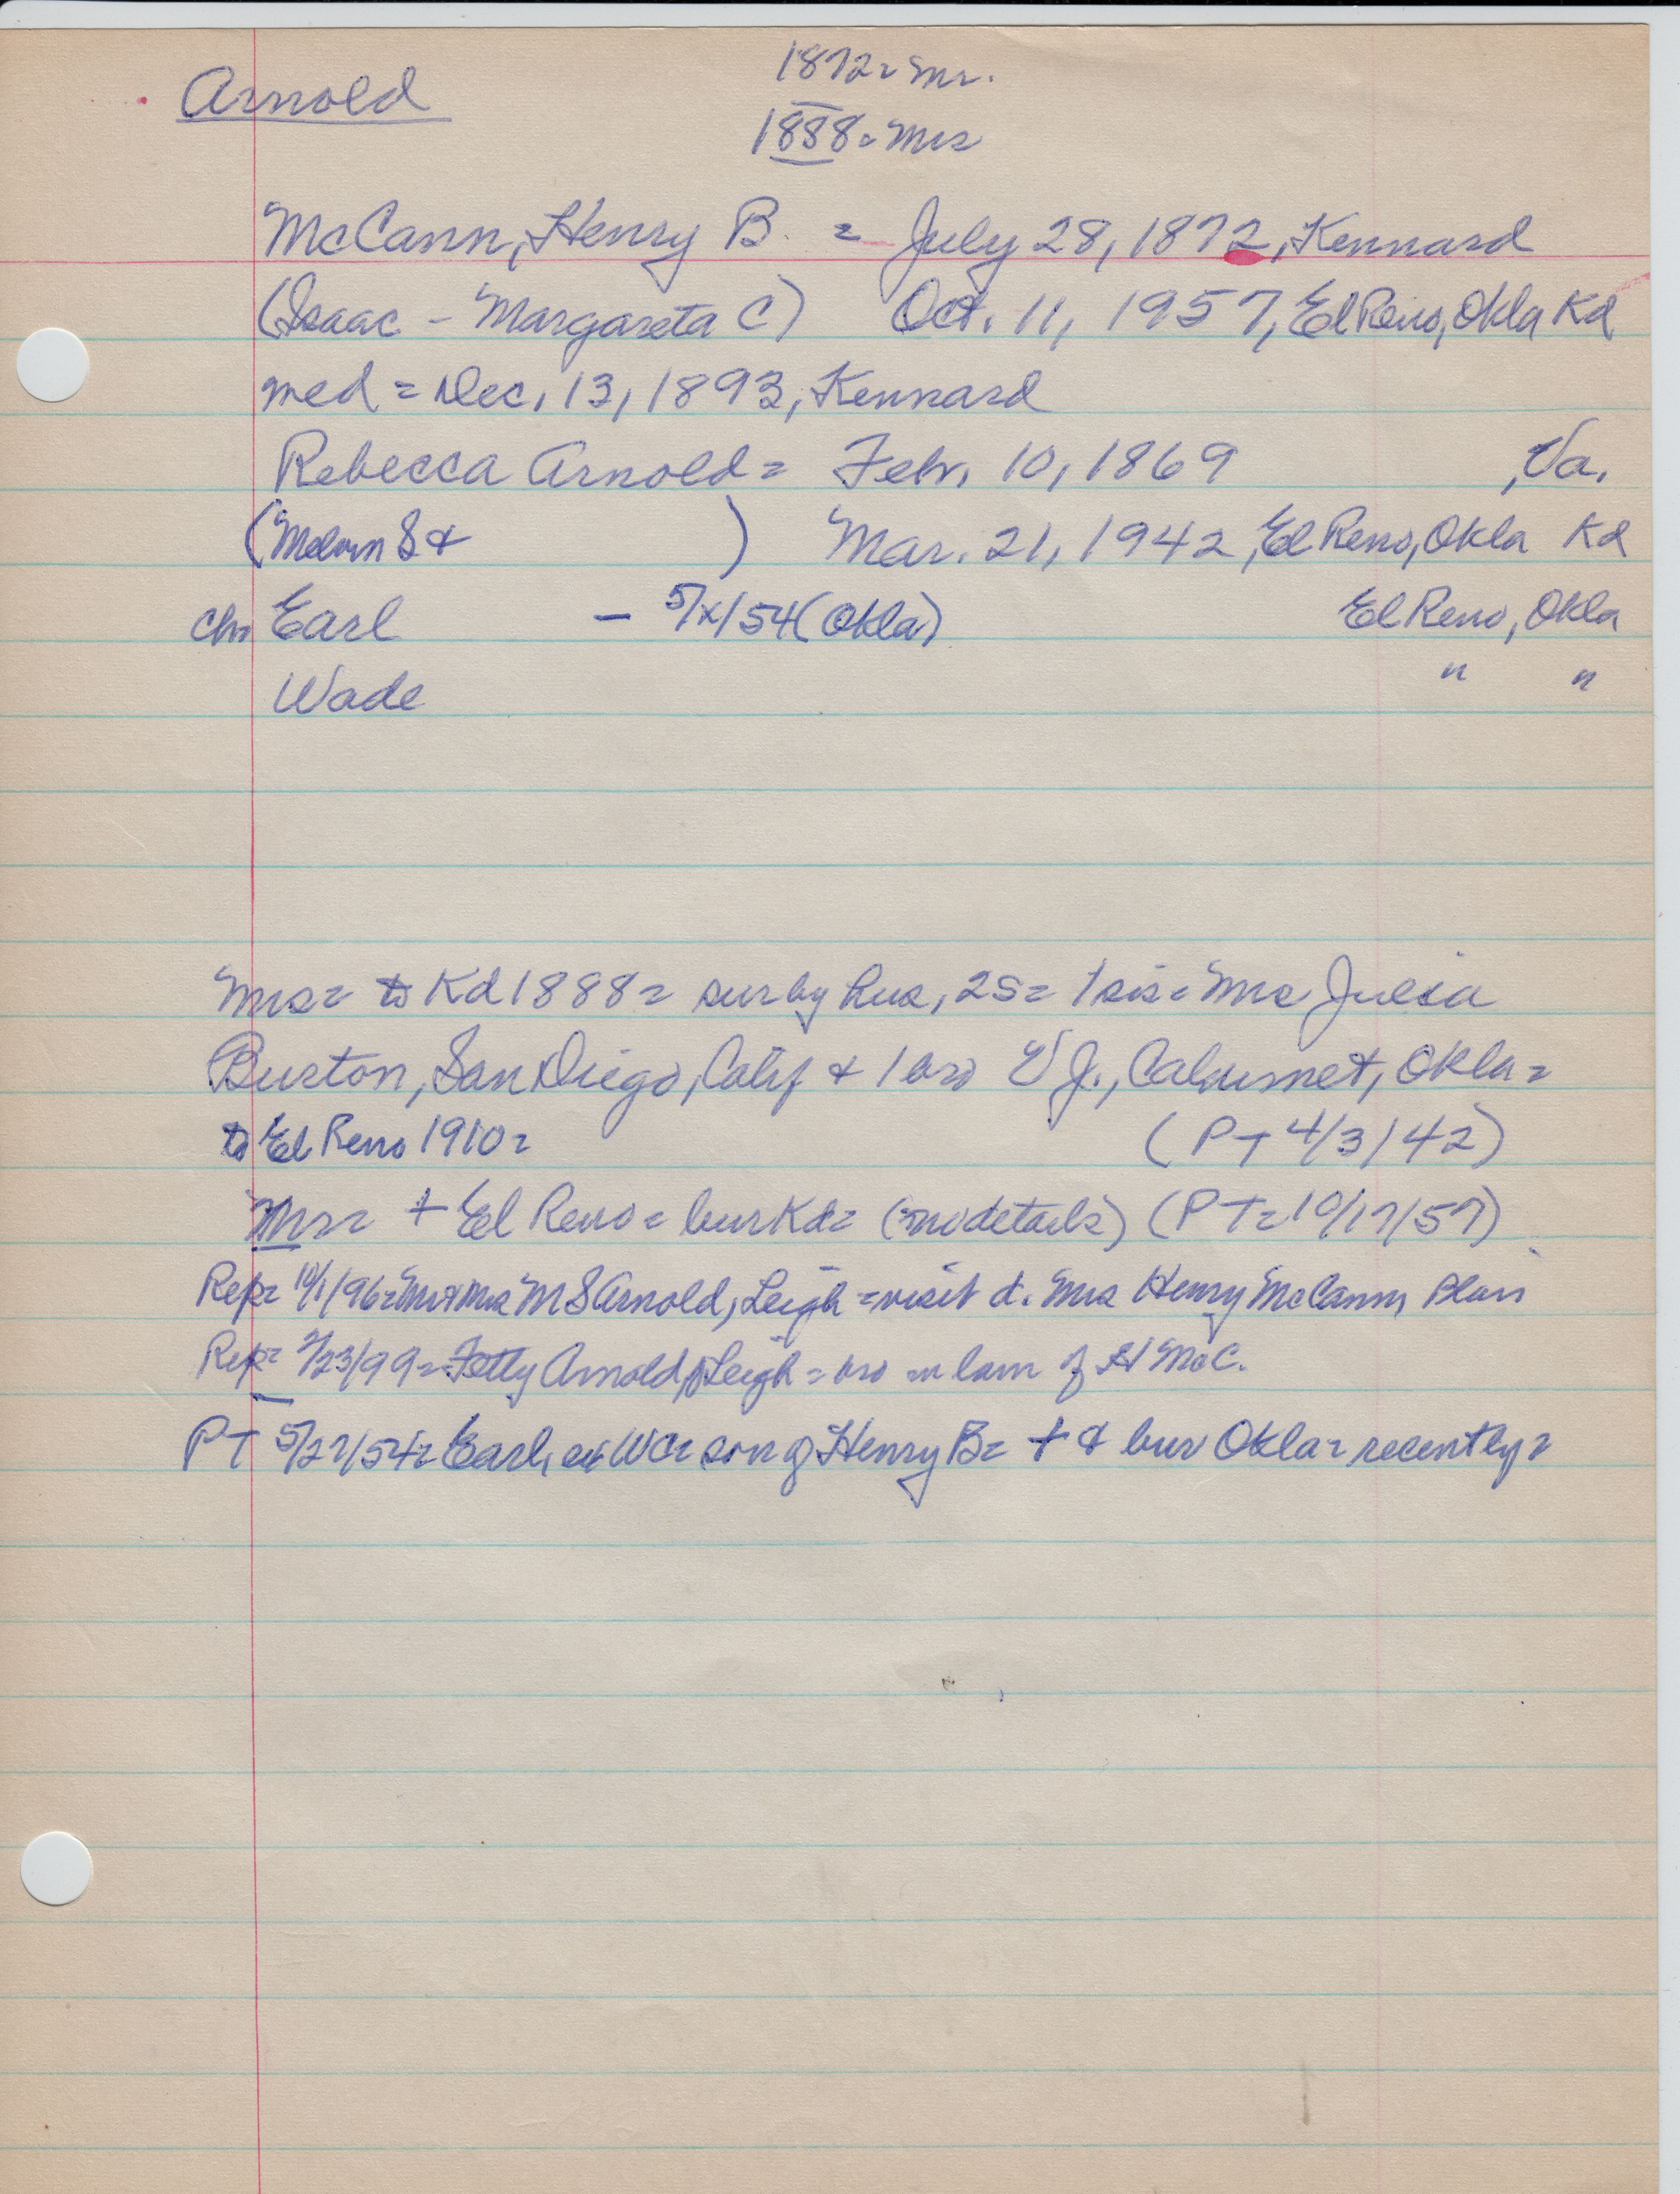 Arnold
1872 = Mr.
1888 = Mrs
McCann, Henry B. = July 28, 1872, Kennard
(Isaac - Margareta C) Oct. 11, 1957, El Reno, Okla Kd
med = Dec. 13, 1893, Kennard
Rebecca Arnold = Febr. 10, 1869 , Va.
(Melvin S + ) Mar. 21, 1942, El Reno, Okla Kd
chn Earl - 5/x/54 (Okla) El Reno, Okla
Wade " "
Mrs = to Kd 1888 = sur by hus, 2S = 1 sis = Mrs Julia
Burton, San Diego, Calif + 1 bro V J., Calumet, Okla =
to El Reno 1910 = (PT 4/3/42)
Mr = + El Reno = bur Kd = (no details) (PT = 10/17/57)
Rep = 10/1/96 = Mr + Mrs M S Arnold, Leigh = visit d. Mrs Henry McCann, Blair
Rep = 2/23/99 = Fetty Arnold, Leigh = bro in law of H McC.
PT 5/27/54 = Earl, ex WC = son of Henry B = + & bur Okla = recently =